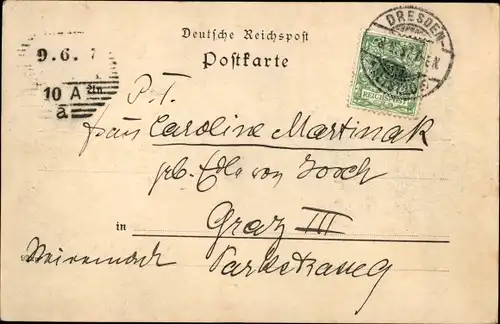 Deutsche Reichspost
Postkarte
DRESDEN-
REICHSPOST
9.6.
10 A
a
P.T.
Frau Caroline Martinak
geb. Edle von
in Graz III
Steiermark